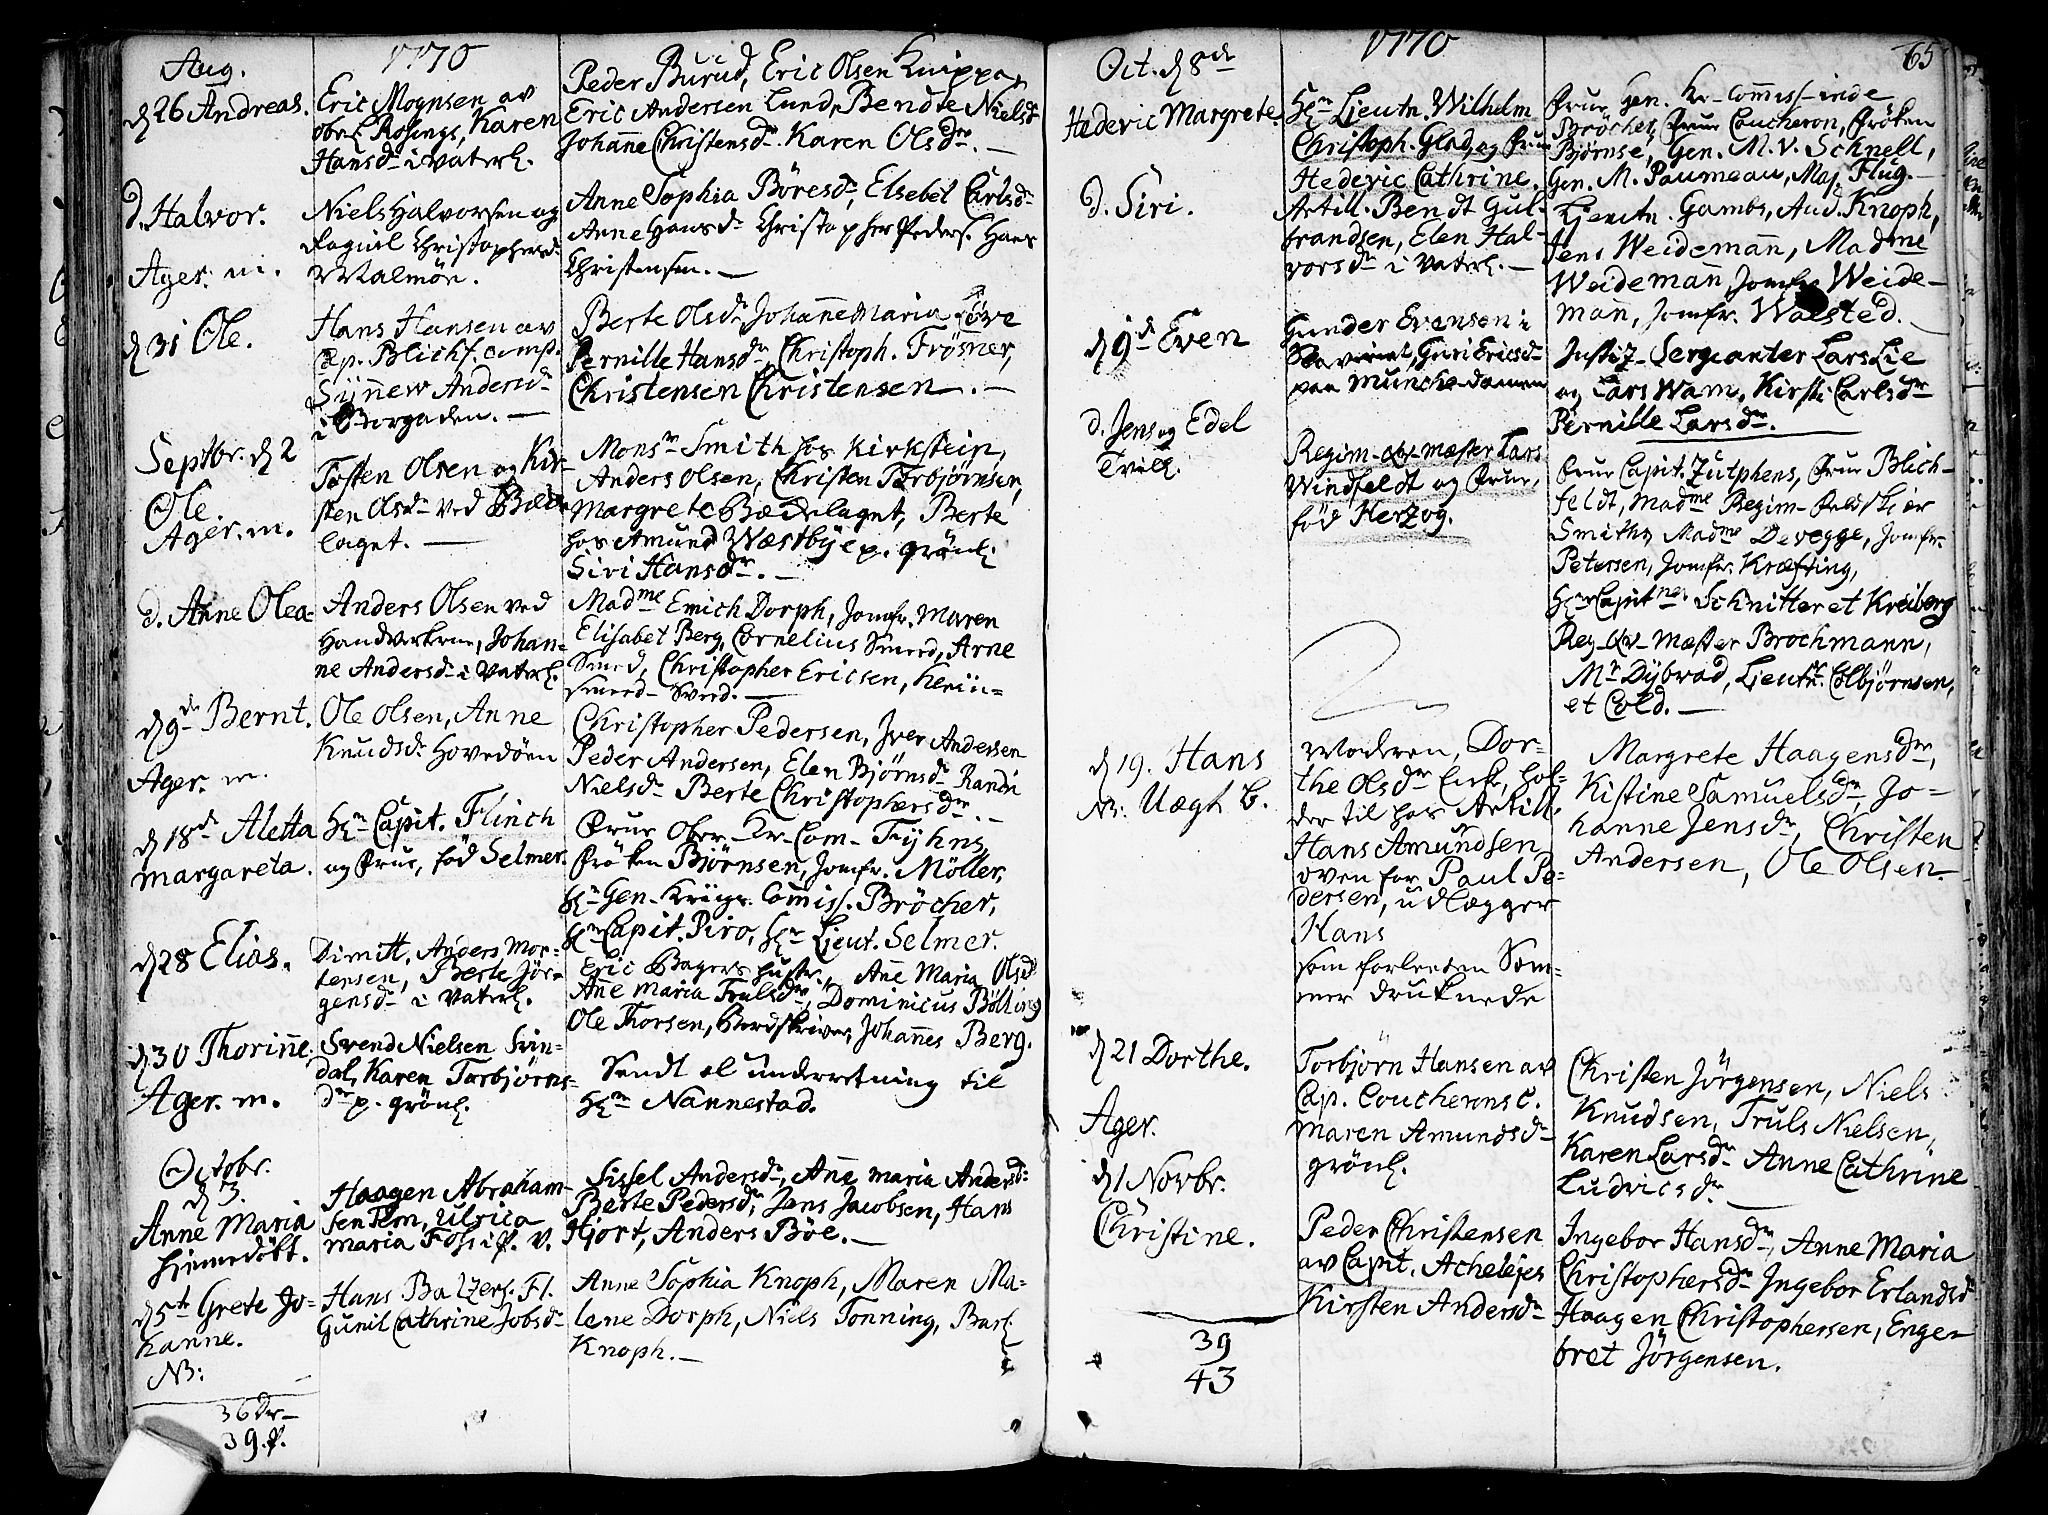 Aug.
1770
d 26 Andreas.
Eric Mognsen av
obrl. Rosings, Karen
Hansdr i Vaterl.
Peder Burud, Eric Olsen Knippe,
Eric Andersen Lund, Bendte Nielsdr
Johanne Christensdr. Karen Olsdr. —
d. Halvor.
Ager. m.
Niels Halvorsen og
Raguil Christophersdr
Malmöe.
Anne Sophia Böresd: Elsebet Carlsdr
Anne Hansdr Christopher Peders. Hans
Christensen. —
d 31 Ole.
Hans Hansen av
Cap. Blichf. comp.
Synnew Andersdr
i Borgaden. —
Berte Olsdr Johanne Maria
Pernille Hansdr, Christoph. Frösner,
Christensen Christensen. —
Septbr. d 2
Ole.
Ager. m.
Tosten Olsen og Kir-
sten Olsdr ved Bæde
laget. —
Monsr Smith hos Kirkstein,
Anders Olsen, Christen Torbjörnsen,
Margrete Bædelaget, Berte
hos Amund Wæstbye p. grönl.
Siri Hansdr. —
d. Anne Olea
Anders Olsen ved
Handverkerne, Johan-
ne Andersdr i Vaterl.
Madme Emich Dorph, Jomfr. Maren
Elisabet Berg, Cornelius Smed, Arne
Smed, Christopher Ericsen,
Smed-Sved. —
d 9de Bernt.
Ager. m.
Ole Olsen, Anne
Knudsdr Hovedöen
Christopher Pedersen, Iver Andersen
Peder Andersen, Elen Björnsdr Randi
Nielsdr Berte Christophersdr. —
d 18de Aletta
Margareta.
Hr Capit. Flinch
og Frue, föd Selmer.
Frue Ober-Kr-Com- Tyhns,
Fröken Björnsen, Jomfr. Möller,
Hr Gen-Kriigs-Comiss. Bröcher,
Hr Capit. Piro, Hr Lieut. Selmer.
d 28 Elias.
Dimitt. Anders Mor-
tensen, Berte Jör-
gensdr i Vaterl.
Eric Bagers hustr., Anne Maria Olsdr
Anne Maria Trulsdr, Dominicus Bölling
Ole Thorsen, Johannes Berg.
d 30 Thorinne.
Ager. m.
Svend Nielsen Svin-
dal, Karen Torbjörns-
dr p. grönl.
Sendt al underretning til
Hr Nannestad.
Octobr.
d 3.
Anne Maria
hiemedöbt.
Haagen Abraham-
sen Fem, Ulrica
Maria Foss i P. V.
Sissel Andersdr, Anne Maria Andersd:
Berte Pedersdr, Jens Jacobsen, Hans
Hjort, Anders Böe. —
d 5te Grete Jo-
hanne.
NB:
Hans Balzers. Fl.
Gunil Cathrine Jobsdr
Anne Sophia Knoph, Maren Ma-
lene Dorph, Niels Tonning, Bart
Knoph. —
36 Dr —
39. P.
1770
65
Oct. d 8de
Hedevic Margrete.
Hr Lieutn. Wilhelm
Christoph. Glad, og Frue
Hedevic Cathrine.
Frue Gen. Kr-Commiss-inde
Bröcher, Frue Coucheron, Fröken
Björnse, Gen. M. V. Schnell,
Gen. M. Paumeau, Maj. Flug.
Ljeutn. Gambs, Aud. Knoph,
Jens Weidemann, Madme
Weidemann, Jomfr. Weide-
mann, Jomfr. Walsted. —
d. Siri.
Artill. Bendt Gul-
brandsen, Elen Hal-
vorsdr i Vaterl. —
d 9de Even
Gunder Evensen i
Guri Ericsdr
paa Munchedammen
Justiz-Sergeanter Lars Lie
og Lars Wam, Kirsti Carlsdr
Pernille Larsdr.
d. Jens og Edel
Tvill.
Regim-qv-mæster Lars
Windfeldt og Frue,
föd Herzog.
Frue Capit. Zulphens, Frue Blich-
feldt, Madme Regim-Feldskiær
Smiths, Madme Devegge, Jomfr.
Petersen, Jomfr. Kræfting,
Hr Capitne. Schnitler et Kreiberg
Reg-qv-mæster Brochmann,
Mr Dybvad, Ljeutn. Colbjörnsen,
et Cold. —
d 19. Hans
NB: Uægte B.
Moderen, Dor-
the Olsdr hol-
der til hos Artill.
Hans Amundsen
oven for Paul Pe-
dersen, udlægger
Hans
som forleeden Som-
mer druknede
Margrete Haagensdr,
Kistine Samuelsdr, Jo-
hanne Jensdr, Christen
Andersen, Ole Olsen.
d 21 Dorthe.
Ager.
Torbjörn Hansen av
Cap. Coucherons C.
Maren Amundsdr
grönl.
Christen Jörgensen, Niels
Knudsen, Truls Nielsen,
Karen Larsdr Anne Cathrine
Ludvicsdr —
d 1 Novbr.
Christine.
Peder Christensen
av Capit. Achelejes
Kirsten Andersdr
Ingebor Hansdr, Anne Maria
Christophersdr Ingebor Erlandsdr
Haagen Christophersen, Enge-
bret Jörgensen.
39
43